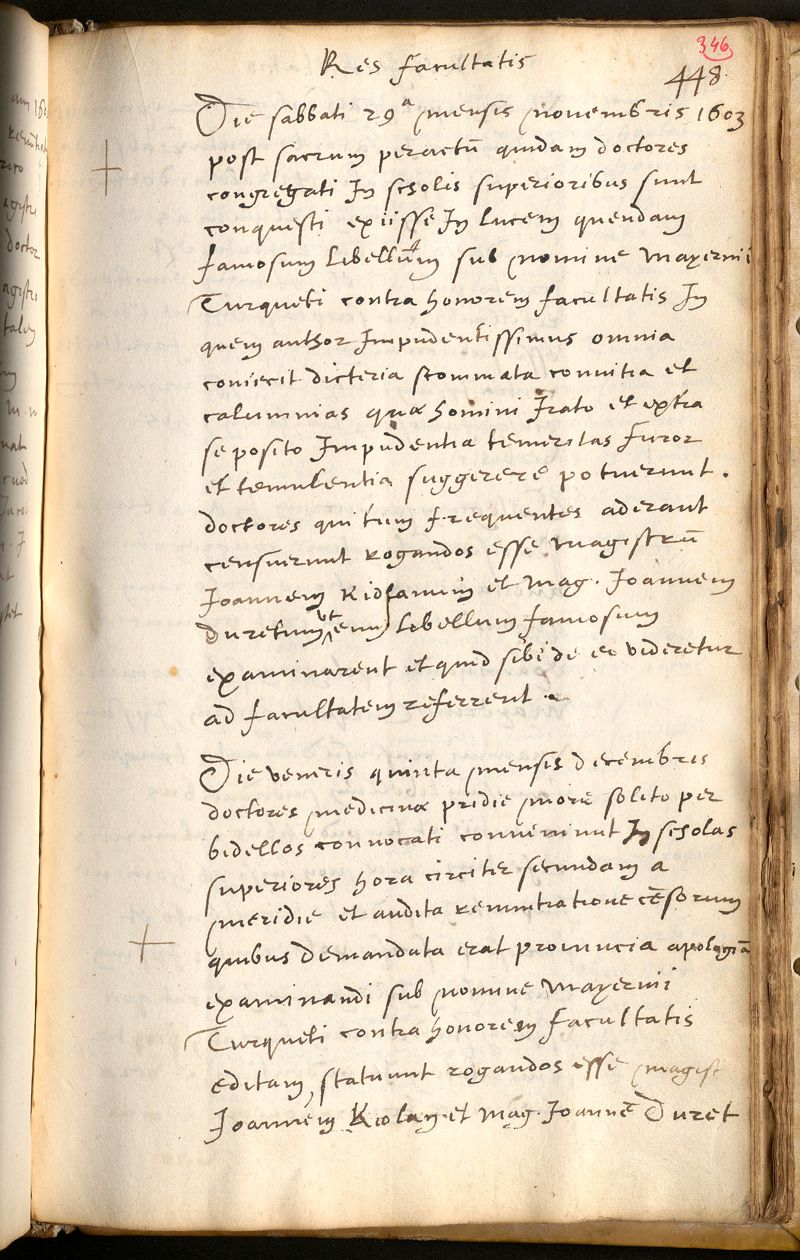 346
Res facultatis
448.
Die sabbati 29ª mensis novembris 1603
post sacrum peractū quidam doctores
congregati In scholis superioribus sunt
conquesti exiisse In lucem quendam
famosum libellum sub nomine Mayernii
Turqueti contra honorem facultatis In
quem author Impudentissimus omnia
coniecit dicteria scommata convitia et
calumnias quæ homini Irato et extra
se posito Impudentia temeritas furor
et temulentia suggerere potuerunt.
doctores qui tum frequentes aderant
censuerunt rogandos esse Magistrū
Joannem Riolanum et Mag. Joannem
duretum ut eum libellum famosum
examinarent et quid sibi de eo videretur
ad facultatem referrent.
Die veneris quinta mensis decembris
doctores medicinæ pridie more solito per
bidellos convocati convenerunt In scholas
superiores hora circiter secundam a
meridie et audita renuntiatione cēsorum
quibus demandata erat provincia apologiā
examinandi sub nomine Mayernii
Turqueti contra honorem facultatis
editam, statuunt rogandos esse magist
Joannem Riolan. et Mag. Joannē Duret